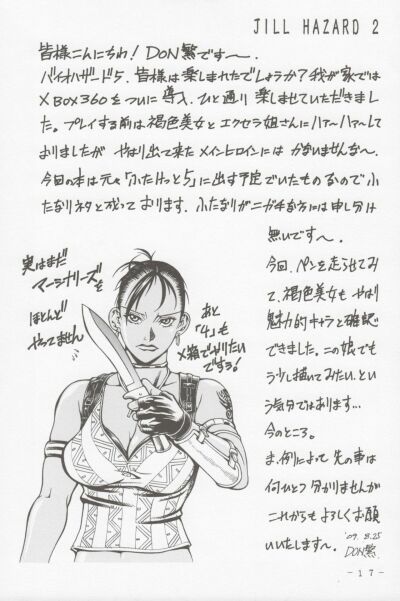 JILL HAZARD 2
皆様こんにちわ!DON繁です〜。
バイオハザード5、皆様は楽しまれたでしょうか?我が家では
XBOX360をついに導入、ひと通り楽しませていただきまし
た。プレイする前は褐色美女とエクセラ姐さんにハァ〜ハァ〜して
おりましたが やはり出て来たメインヒロインには かないませんな〜。
今回の本は元々「ふたけっと5」に出す予定でいたものなので ふ
たなりネタと成っております。ふたなりがニガ手な方には申し分け
無いです〜。
今回、ペンを走らせてみ
て、褐色美女も やはり
魅力的キャラと確認
できました。この娘でも
う少し描いてみたい、とい
う気分ではあります…
今のところ。
ま、例によって 先の事は
何ひとつ 分かりませんが
これからも よろしくお願
いいたします〜。
'09.8.25
DON繁
実はまだ
マーシナリーズを
ほとんど
やってません
あと
「4」も
×箱でやりたい
ですぅ!
-17-